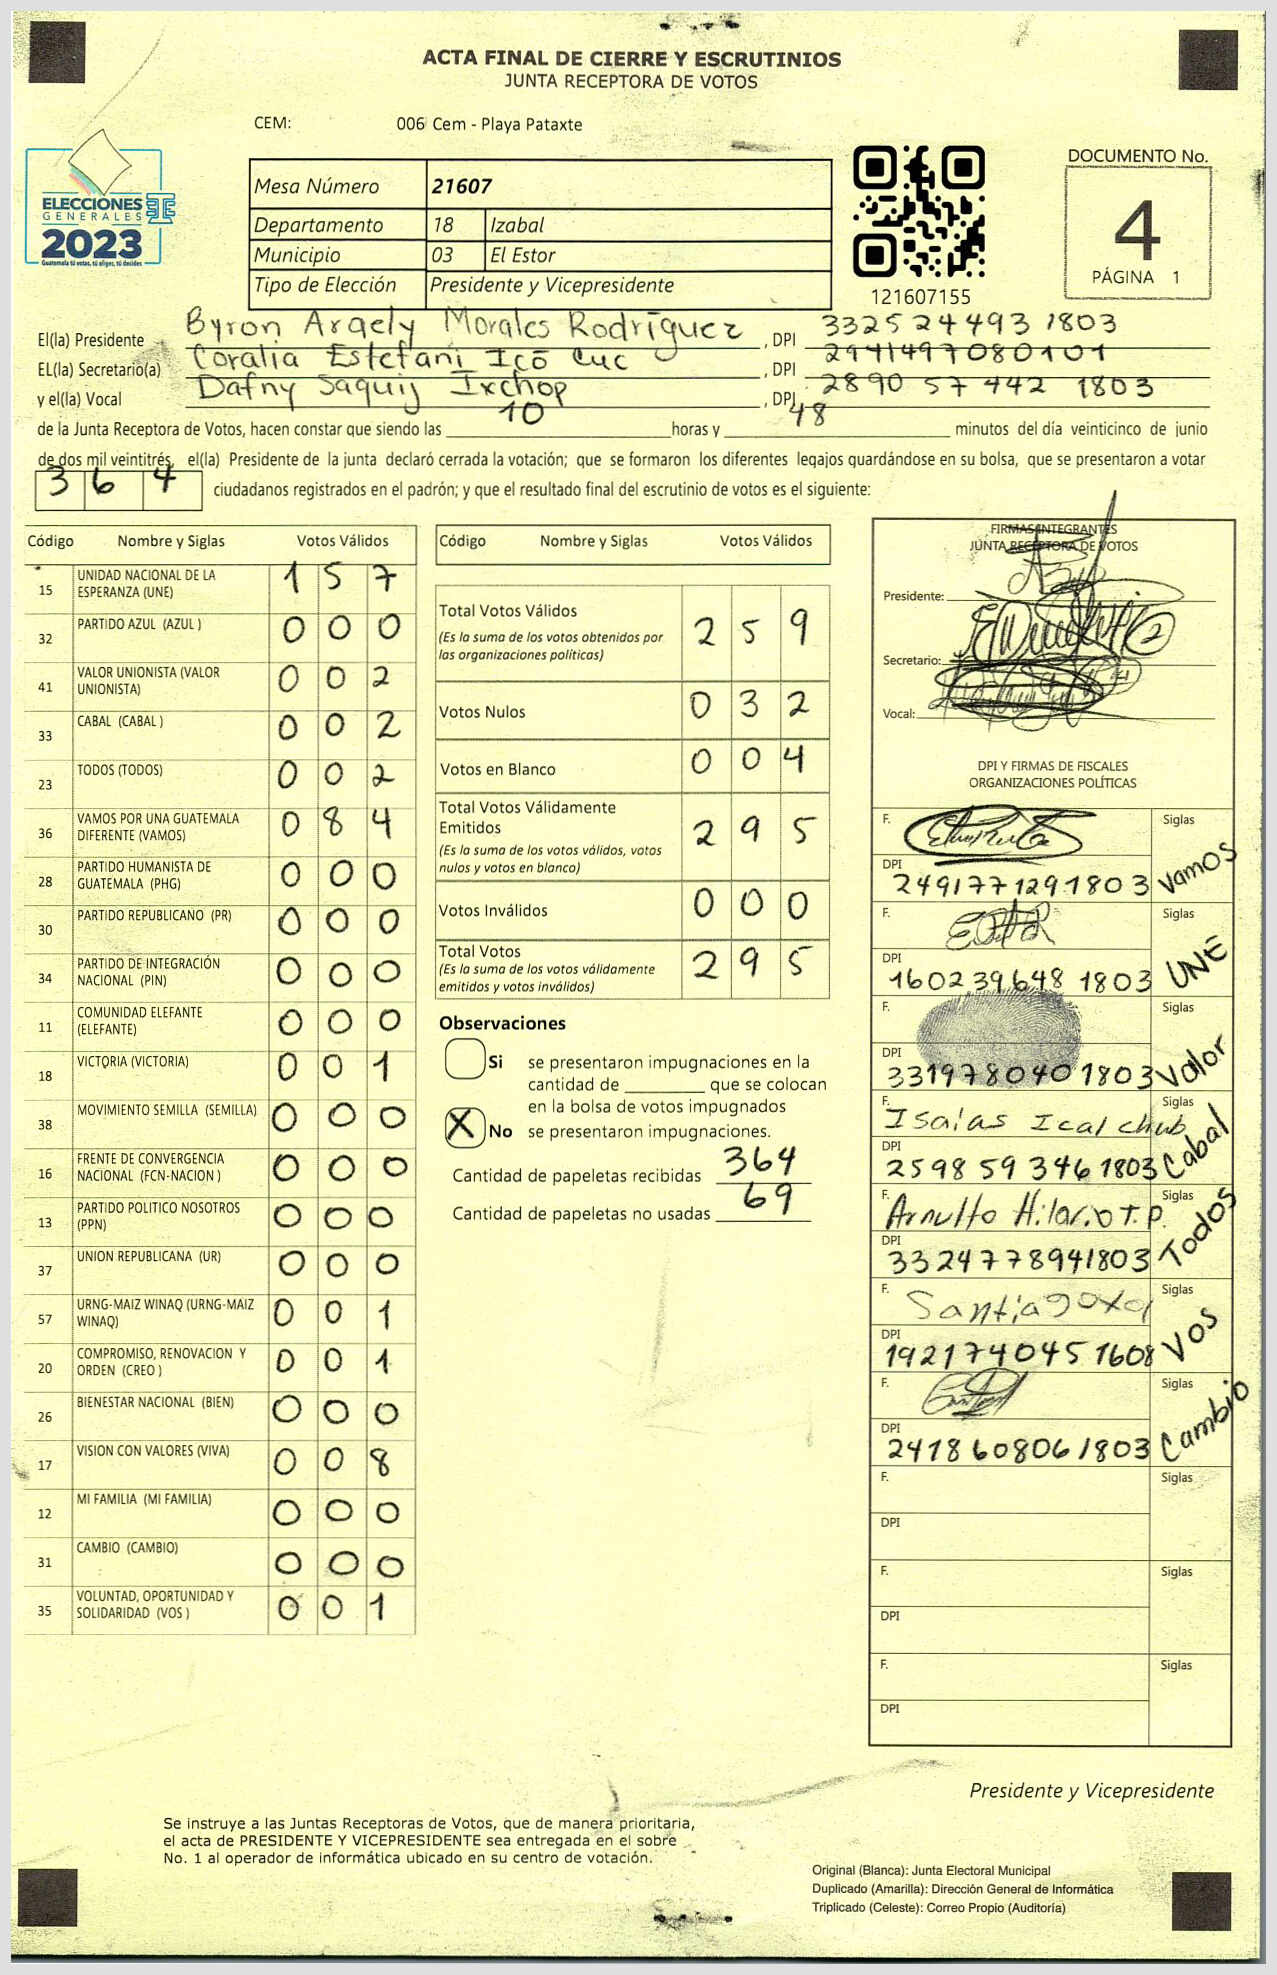 ACTA FINAL DE CIERRE Y ESCRUTINIOS
JUNTA RECEPTORA DE VOTOS
CEM: 006 Cem - Playa Pataxte
ELECCIONES
GENERALES
2023
Guatemala tú votas, tú eliges, tú decides
Mesa Número 21607
Departamento 18 Izabal
Municipio 03 El Estor
Tipo de Elección Presidente y Vicepresidente
121607155
DOCUMENTO No.
4
PÁGINA 1
El(la) Presidente Byron Argely Morales Rodríguez, DPI 3325 24493 1803
EL(la) Secretario(a) Coralia Estefani Icó Cuc, DPI 2941497080101
y el(la) Vocal Dafny Saquij Ixchop, DPI 2890 57 442 1803
de la Junta Receptora de Votos, hacen constar que siendo las 10 horas y 48 minutos del día veinticinco de junio
de dos mil veintitrés, el(la) Presidente de la junta declaró cerrada la votación; que se formaron los diferentes legajos guardándose en su bolsa, que se presentaron a votar
364 ciudadanos registrados en el padrón; y que el resultado final del escrutinio de votos es el siguiente:
Código Nombre y Siglas Votos Válidos
15 UNIDAD NACIONAL DE LA ESPERANZA (UNE) 1 5 7
32 PARTIDO AZUL (AZUL ) 0 0 0
41 VALOR UNIONISTA (VALOR UNIONISTA) 0 0 2
33 CABAL (CABAL ) 0 0 2
23 TODOS (TODOS) 0 0 2
36 VAMOS POR UNA GUATEMALA DIFERENTE (VAMOS) 0 8 4
28 PARTIDO HUMANISTA DE GUATEMALA (PHG) 0 0 0
30 PARTIDO REPUBLICANO (PR) 0 0 0
34 PARTIDO DE INTEGRACIÓN NACIONAL (PIN) 0 0 0
11 COMUNIDAD ELEFANTE (ELEFANTE) 0 0 0
18 VICTORIA (VICTORIA) 0 0 1
38 MOVIMIENTO SEMILLA (SEMILLA) 0 0 0
16 FRENTE DE CONVERGENCIA NACIONAL (FCN-NACION ) 0 0 0
13 PARTIDO POLITICO NOSOTROS (PPN) 0 0 0
37 UNION REPUBLICANA (UR) 0 0 0
57 URNG-MAIZ WINAQ (URNG-MAIZ WINAQ) 0 0 1
20 COMPROMISO, RENOVACION Y ORDEN (CREO ) 0 0 1
26 BIENESTAR NACIONAL (BIEN) 0 0 0
17 VISION CON VALORES (VIVA) 0 0 8
12 MI FAMILIA (MI FAMILIA) 0 0 0
31 CAMBIO (CAMBIO) 0 0 0
35 VOLUNTAD, OPORTUNIDAD Y SOLIDARIDAD (VOS ) 0 0 1
Código Nombre y Siglas Votos Válidos
Total Votos Válidos 2 5 9
(Es la suma de los votos obtenidos por
las organizaciones políticas)
Votos Nulos 0 3 2
Votos en Blanco 0 0 4
Total Votos Válidamente
Emitidos 2 9 5
(Es la suma de los votos válidos, votos
nulos y votos en blanco)
Votos Inválidos 0 0 0
Total Votos 2 9 5
(Es la suma de los votos válidamente
emitidos y votos inválidos)
Observaciones
Si se presentaron impugnaciones en la
cantidad de ________ que se colocan
en la bolsa de votos impugnados
X No se presentaron impugnaciones.
Cantidad de papeletas recibidas 364
Cantidad de papeletas no usadas 69
FIRMAS INTEGRANTES
JUNTA RECEPTORA DE VOTOS
Presidente:
Secretario:
Vocal:
DPI Y FIRMAS DE FISCALES
ORGANIZACIONES POLÍTICAS
F. Siglas
DPI 2491771291803 Vamos
F. Siglas
DPI 160239648 1803 UNE
F. Siglas
DPI 3319780401803 Valor
F. Isaias Ical chub Siglas
DPI 2598 59 346 1803 Cabal
F. Arnulfo Hilario T.P. Siglas
DPI 3324778941803 Todos
F. Siglas
DPI 1921740451608 Vos
F. Siglas
DPI 2418608061803 Cambio
F. Siglas
DPI
F. Siglas
DPI
F. Siglas
DPI
Presidente y Vicepresidente
Se instruye a las Juntas Receptoras de Votos, que de manera prioritaria,
el acta de PRESIDENTE Y VICEPRESIDENTE sea entregada en el sobre
No. 1 al operador de informática ubicado en su centro de votación.
Original (Blanca): Junta Electoral Municipal
Duplicado (Amarilla): Dirección General de Informática
Triplicado (Celeste): Correo Propio (Auditoría)